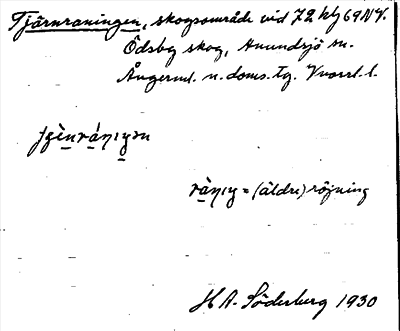 Tjärnraningen, skogsområde vid 72 hg 69 NV.
Ödsby skog, Anundsjö sn.
Ångerml. n. doms. tg. Vnorrl. l.
rànıŋ = (äldre) röjning
H A. Söderberg 1930